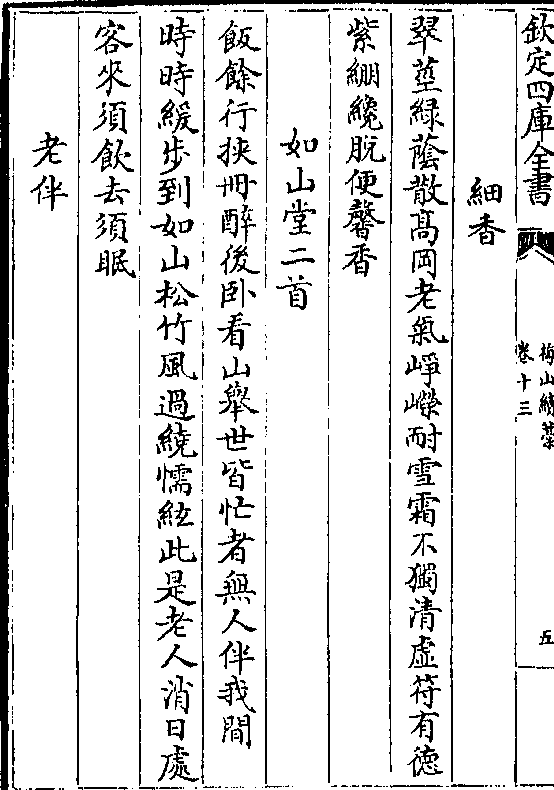 欽定四庫全書
梅山續藁
卷十三
五
細香
翠莖緑蔭散髙岡老氣崢嶸耐雪霜不獨清虚符有徳
紫綳纔脱便馨香
如山堂二首
飯餘行挾冊醉後卧看山舉世皆忙者無人伴我閒
時時緩步到如山松竹風過繞懦絃此是老人消日處
客來須飲去須眠
老伴